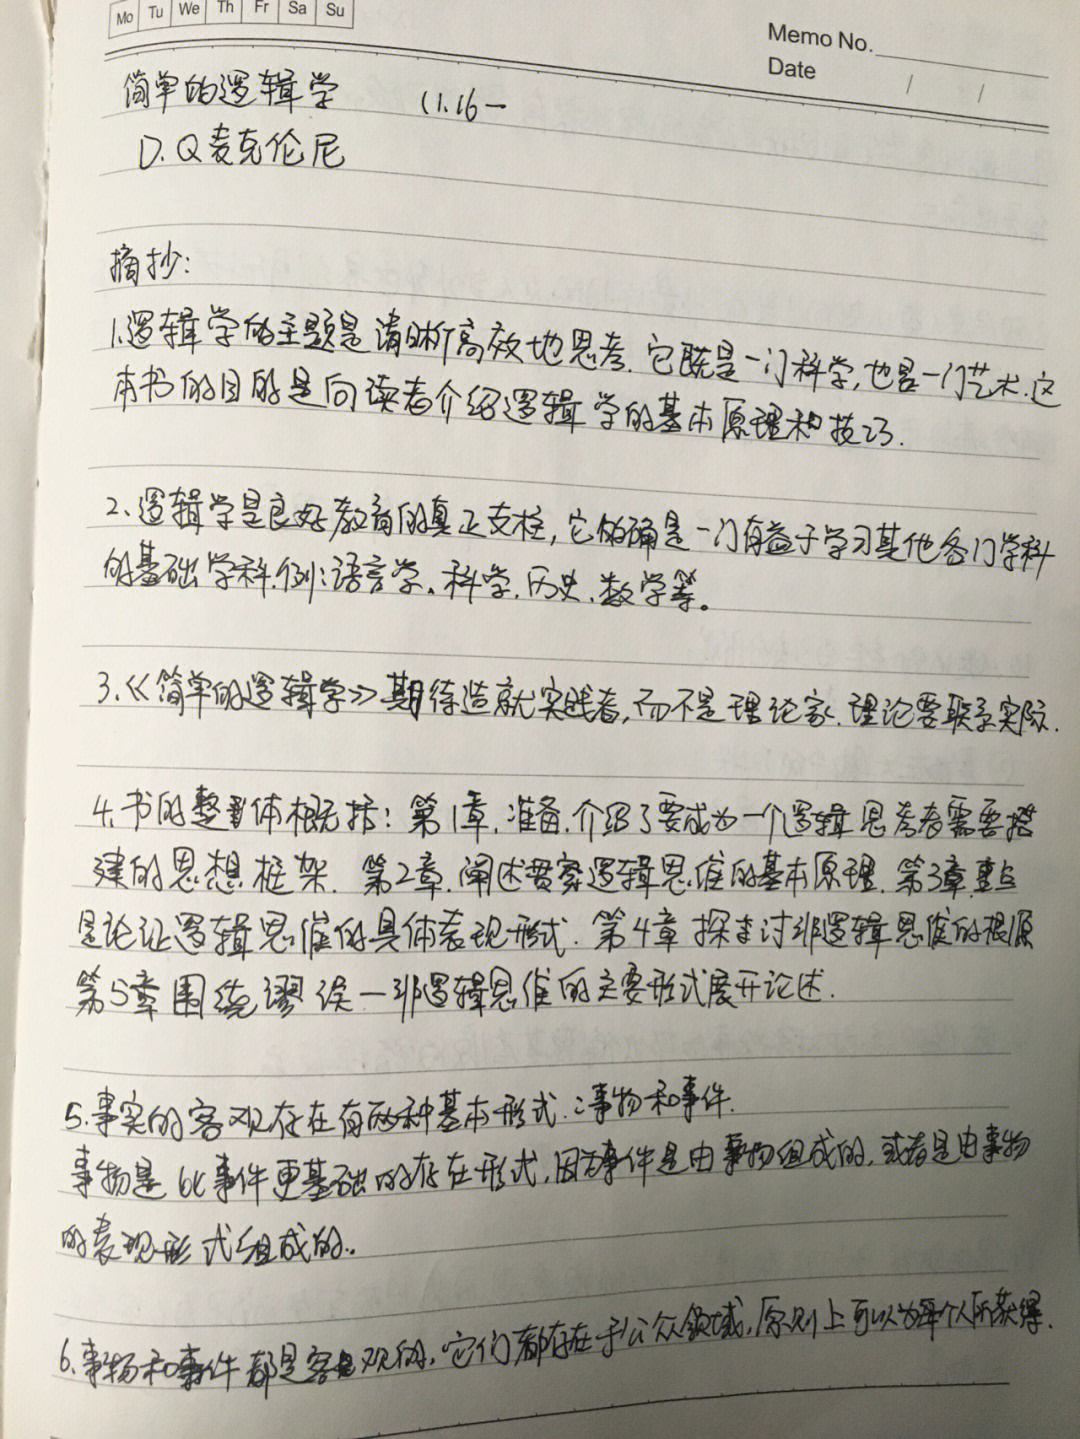 Mo Tu We Th Fr Sa Su
Memo No.
Date / /
简单的逻辑学 (1.16一
D.Q麦克伦尼
摘抄:
1.逻辑学的主题是清晰高效地思考.它既是一门科学,也是一门艺术.这
本书的目的是向读者介绍逻辑学的基本原理和技巧.
2、逻辑学是良好教育的真正支柱,它的确是一门有益于学习其他各门学科
的基础学科.例:语言学、科学、历史、数学等。
3.《简单的逻辑学》期待造就实践者,而不是理论家.理论要联系实际.
4.书的整体概括:第1章,准备.介绍了要成为一个逻辑思考者需要搭
建的思想框架.第2章.阐述贯穿逻辑思维的基本原理.第3章重点
是论证逻辑思维的具体表现形式.第4章探讨非逻辑思维的根源
第5章围绕谬误一非逻辑思维的主要形式展开论述.
5.事实的客观存在有两种基本形式:事物和事件.
事物是比事件更基础的存在形式,因为事件是由事物组成的,或者是由事物
的表现形式组成的.
6.事物和事件都是客观的,它们都存在于公众领域,原则上可以为每个人所获得.